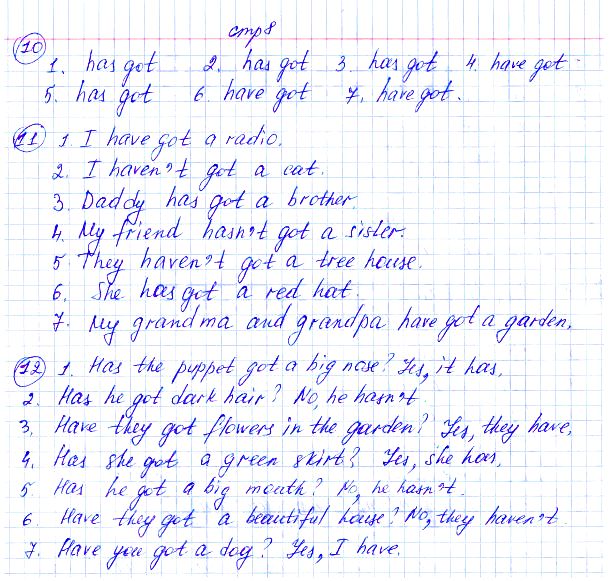 стр 8
10
1. has got 2. has got 3. has got 4. have got.
5. has got 6. have got 7. have got.
11 1. I have got a radio.
2. I haven't got a cat.
3. Daddy has got a brother.
4. My friend hasn't got a sister.
5. They haven't got a tree house.
6. She has got a red hat.
7. My grandma and grandpa have got a garden.
12 1. Has the puppet got a big nose? Yes, it has.
2. Has he got dark hair? No, he hasn't.
3. Have they got flowers in the garden? Yes, they have.
4. Has she got a green skirt? Yes, she has.
5. Has he got a big mouth? No, he hasn't.
6. Have they got a beautiful house? No, they haven't.
7. Have you got a dog? Yes, I have.